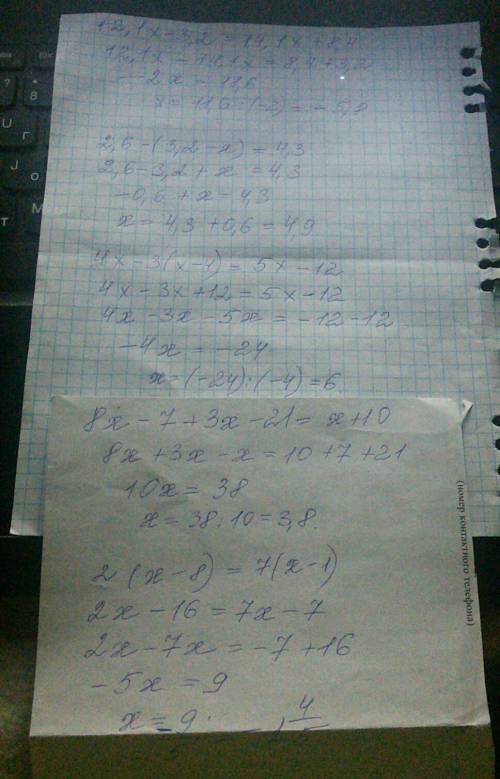 12,1x-3,2=14,1x+8,4
12,1x-14,1x=8,4+3,2
-2x = 11,6
x=11,6:(-2)=-5,8
2,6-(3,2-x)=4,3
2,6-3,2+x=4,3
-0,6+x=4,3
x=4,3+0,6=4,9
4x-3(x-4)=5x-12
4x-3x+12=5x-12
4x-3x-5x=-12-12
-4x=-24
x=(-24):(-4)=6
8x-7+3x-21=x+10
8x+3x-x=10+7+21
10x=38
x=38:10=3,8
2(x-8)=7(x-1)
2x-16=7x-7
2x-7x=-7+16
-5x=9
x=9:
4
(номер контактного телефона)